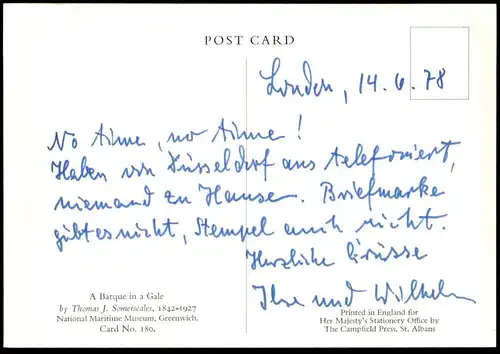 POST CARD
London, 14.6.78
No time, no time!
Haben von Düsseldorf aus telefoniert,
niemand zu Hause. Briefmarke
gibt es nicht, Stempel auch nicht.
Herzliche Grüsse
Ilse und Wilhelm
A Barque in a Gale
by Thomas J. Somerscales, 1842-1927
National Maritime Museum, Greenwich.
Card No. 180.
Printed in England for
Her Majesty's Stationery Office by
The Campfield Press, St. Albans